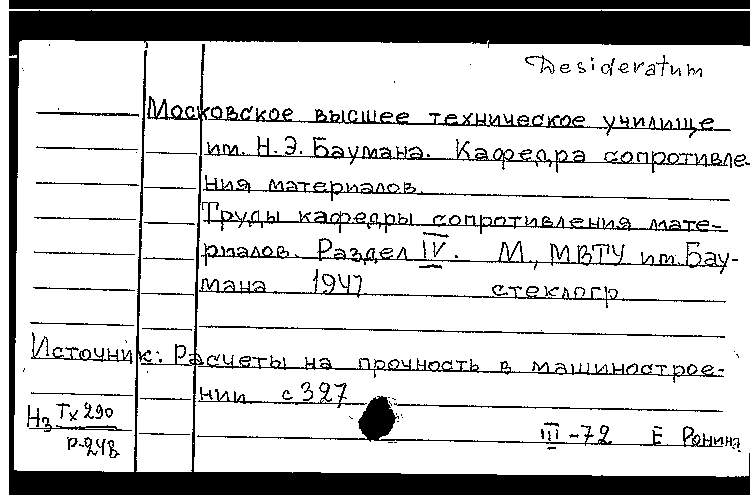 Desideratum
Московское высшее техническое училище
им. Н.Э. Баумана. Кафедра сопротивле
ния материалов.
Труды кафедры сопротивления мате-
риалов. Раздел IV. М., МВТУ им. Бау-
мана 1947 стеклогр
Источник: Расчеты на прочность в машинострое-
нии с 327
Нз Тх 290
р-248
III-72 Е Ронина